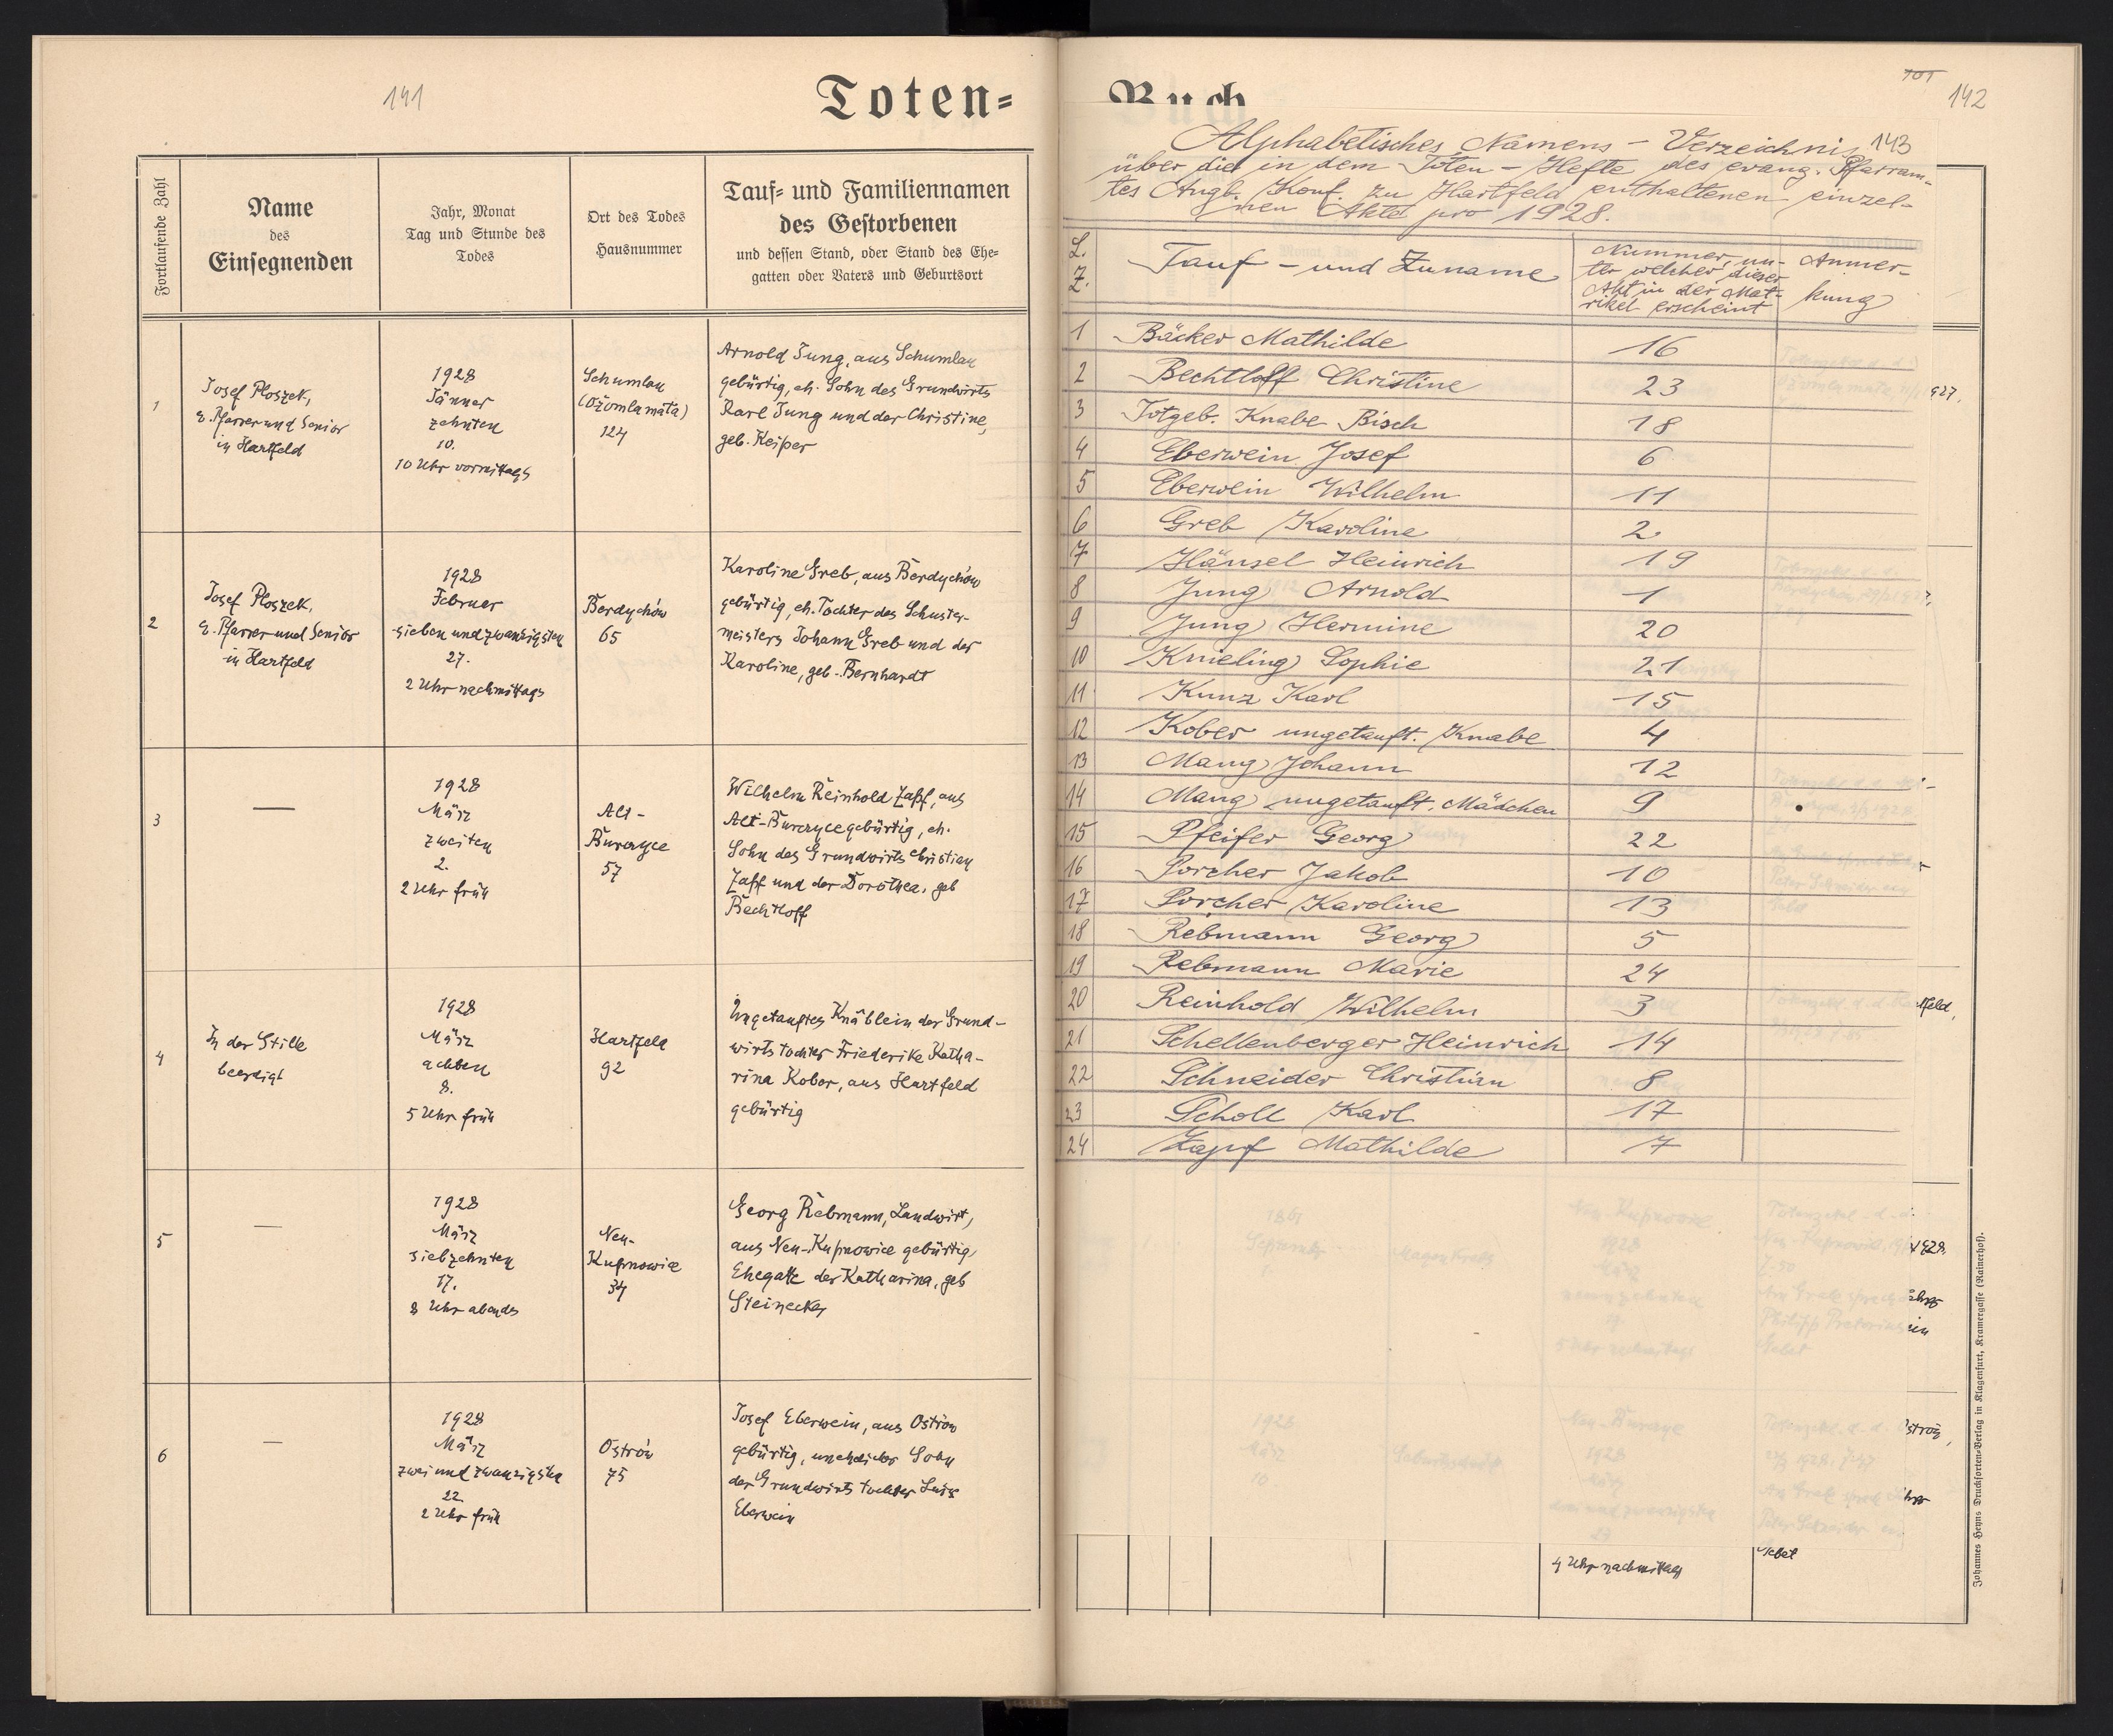 141
Toten-
Fortlaufende Zahl
Name
des
Einsegnenden
Jahr, Monat
Tag und Stunde des
Todes
Ort des Todes
Hausnummer
Tauf- und Familiennamen
des Gestorbenen
und dessen Stand, oder Stand des Ehe-
gatten oder Vaters und Geburtsort
1
Josef Ploszek,
e. Pfarrer und Senior
in Hartfeld
1928
Jänner
zehnten
10.
10 Uhr vormittags
Schumlau
(Ożomla mała)
124
Arnold Jung, aus Schumlau
gebürtig, eh. Sohn des Grundwirts
Karl Jung und der Christine,
geb. Keiper
2
Josef Ploszek,
e. Pfarrer und Senior
in Hartfeld
1928
Februar
sieben und zwanzigsten
27.
2 Uhr nachmittags
Berdychów
65
Karoline Greb, aus Berdychów
gebürtig, eh. Tochter des Schuster-
meisters Johann Greb und der
Karoline, geb. Bernhardt
3
—
1928
März
zweiten
2.
2 Uhr früh
Alt-
Burczyce
57
Wilhelm Reinhold Zapf, aus
Alt-Burczyce gebürtig, eh.
Sohn des Grundwirts Christian
Zapf und der Dorothea, geb
Bechtloff
4
In der Stille
beerdigt
1928
März
achten
8.
5 Uhr früh
Hartfeld
92
Ungetauftes Knäblein der Grund-
wirtstochter Friederike Katha-
rina Kober, aus Hartfeld
gebürtig
5
—
1928
März
siebzehnten
17.
8 Uhr abends
Neu-
Kupnowice
34
Georg Rebmann, Landwirt,
aus Neu-Kupnowice gebürtig,
Ehegatte der Katharina, geb
Steinecker
6
—
1928
März
zwei und zwanzigsten
22.
2 Uhr früh
Ostrów
75
Josef Eberwein, aus Ostrów
gebürtig, unehelicher Sohn
der Grundwirtstochter Luise
Eberwein
Buch
101
142
143
Alphabetisches Namens-Verzeichnis
über die in dem Toten-Hefte des evang. Pfarram-
tes Augb. Konf. zu Hartfeld enthaltenen einzel-
nen Akte pro 1928.
L. Z.
Tauf- und Zuname
Nummer, un-
ter welcher dieser
Akt in der Mat-
rikel erscheint
Anmer-
kung
1 Bäcker Mathilde 16
2 Bechtloff Christine 23
3 Totgeb. Knabe Bisch 18
4 Eberwein Josef 6
5 Eberwein Wilhelm 11
6 Greb Karoline 2
7 Hänsel Heinrich 19
8 Jung Arnold 1
9 Jung Hermine 20
10 Knieling Sophie 21
11 Kunz Karl 15
12 Kober ungetauft. Knabe 4
13 Mang Johann 12
14 Mang ungetauft. Mädchen 9
15 Pfeifer Georg 22
16 Porcher Jakob 10
17 Porcher Karoline 13
18 Rebmann Georg 5
19 Rebmann Marie 24
20 Reinhold Wilhelm 3
21 Schellenberger Heinrich 14
22 Schneider Christian 8
23 Scholl Karl 17
24 Zapf Mathilde 7
927.
tfeld,
1928.
4 Uhr nachmittags
Gebet
Johannes Heyns Drucksorten-Verlag in Klagenfurt, Kramergasse (Rainerhof).